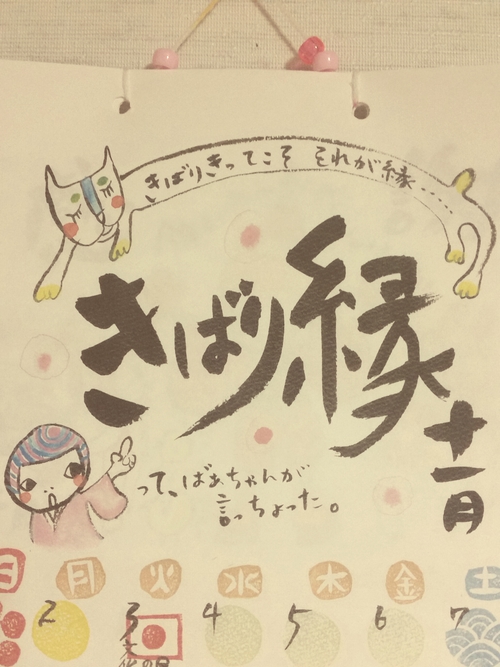 きばりきってこそ それが縁・・・・・
きばり縁
十一月
って、ばあちゃんが
言っちょった。
日 月 火 水 木 金 土
2 3 4 5 6 7
文化の日